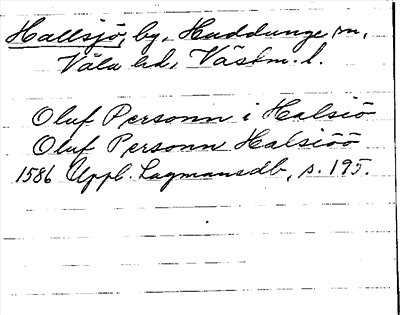 Hallsjö, by, Huddunge sn,
Våla hd, Västm. l.
Oluf Personn i Halsiö
Oluf Personn Halsiöö
1586 Uppl. Lagmansdb, s. 195.